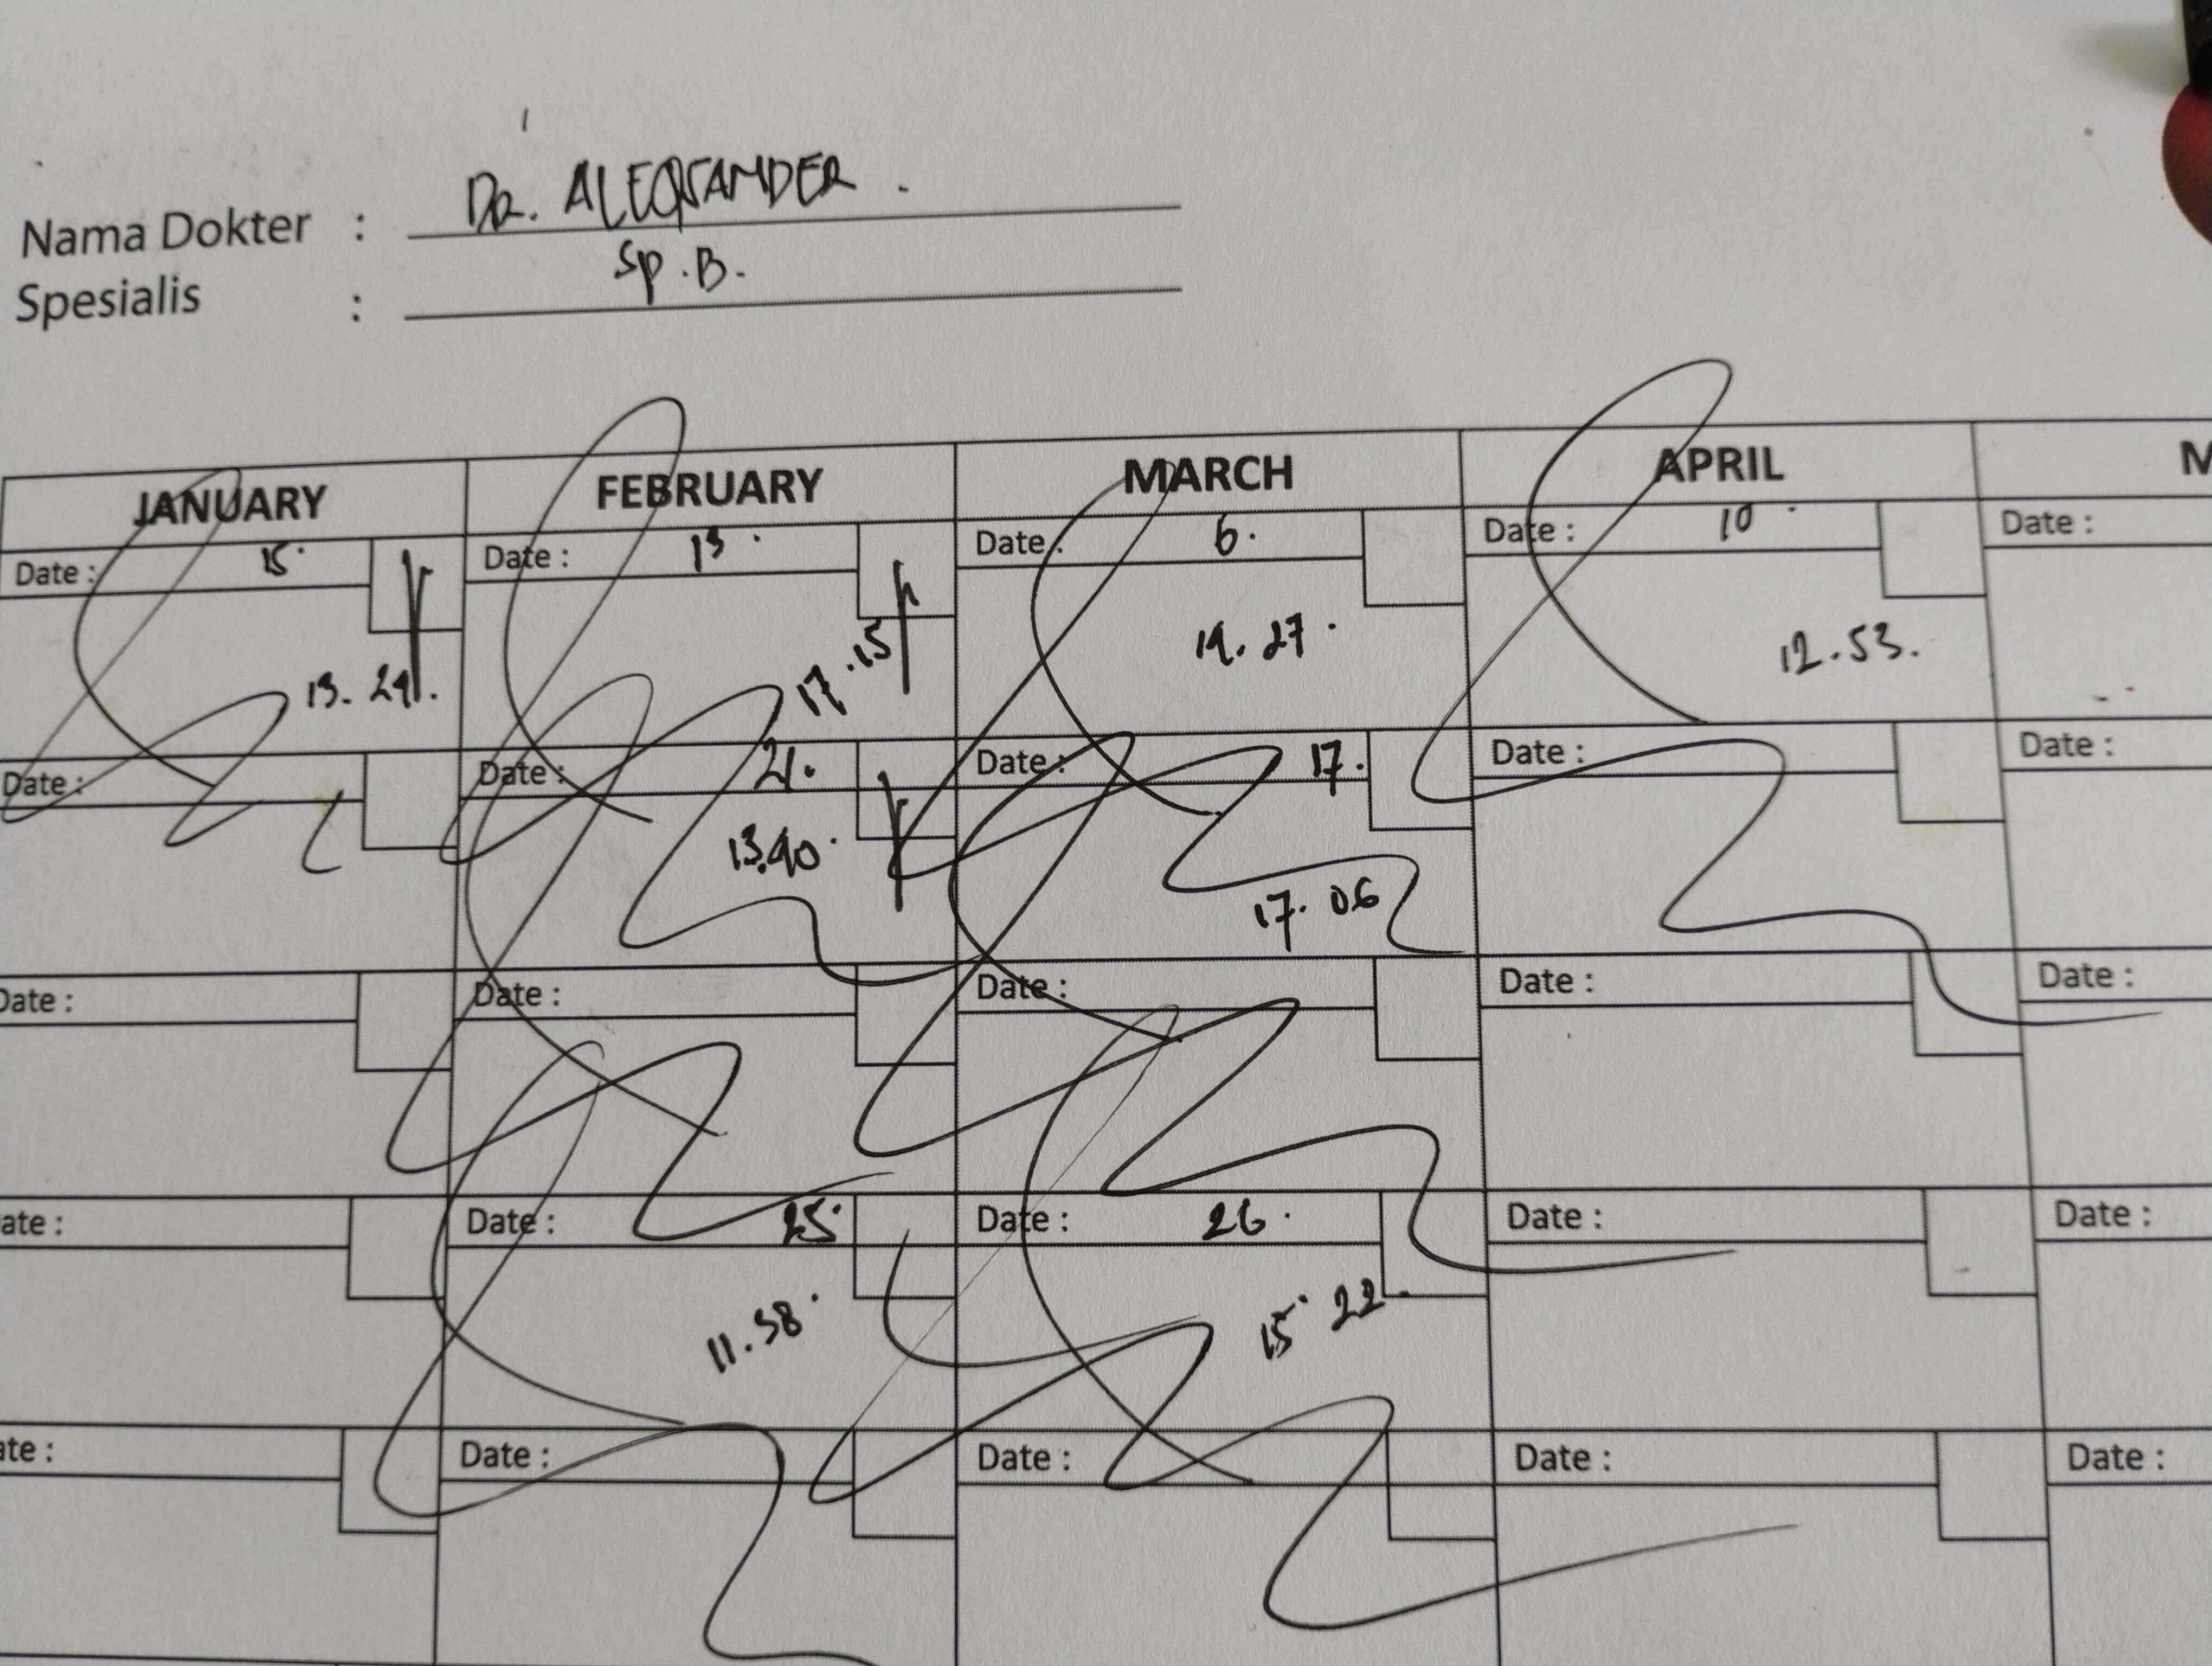 Nama Dokter : DR. ALEQSANDER.
Spesialis : Sp.B.
JANUARY FEBRUARY MARCH APRIL M
Date : 15. Date : 13. Date : 6. Date : 10. Date :
17.15 12.53.
Date : Date : 21. Date : 17. Date : Date :
13.40. 17.06
Date : Date : Date : Date : Date :
ate : Date : 25. Date : 26. Date : Date :
11.38. 15.22.
ate : Date : Date : Date : Date :